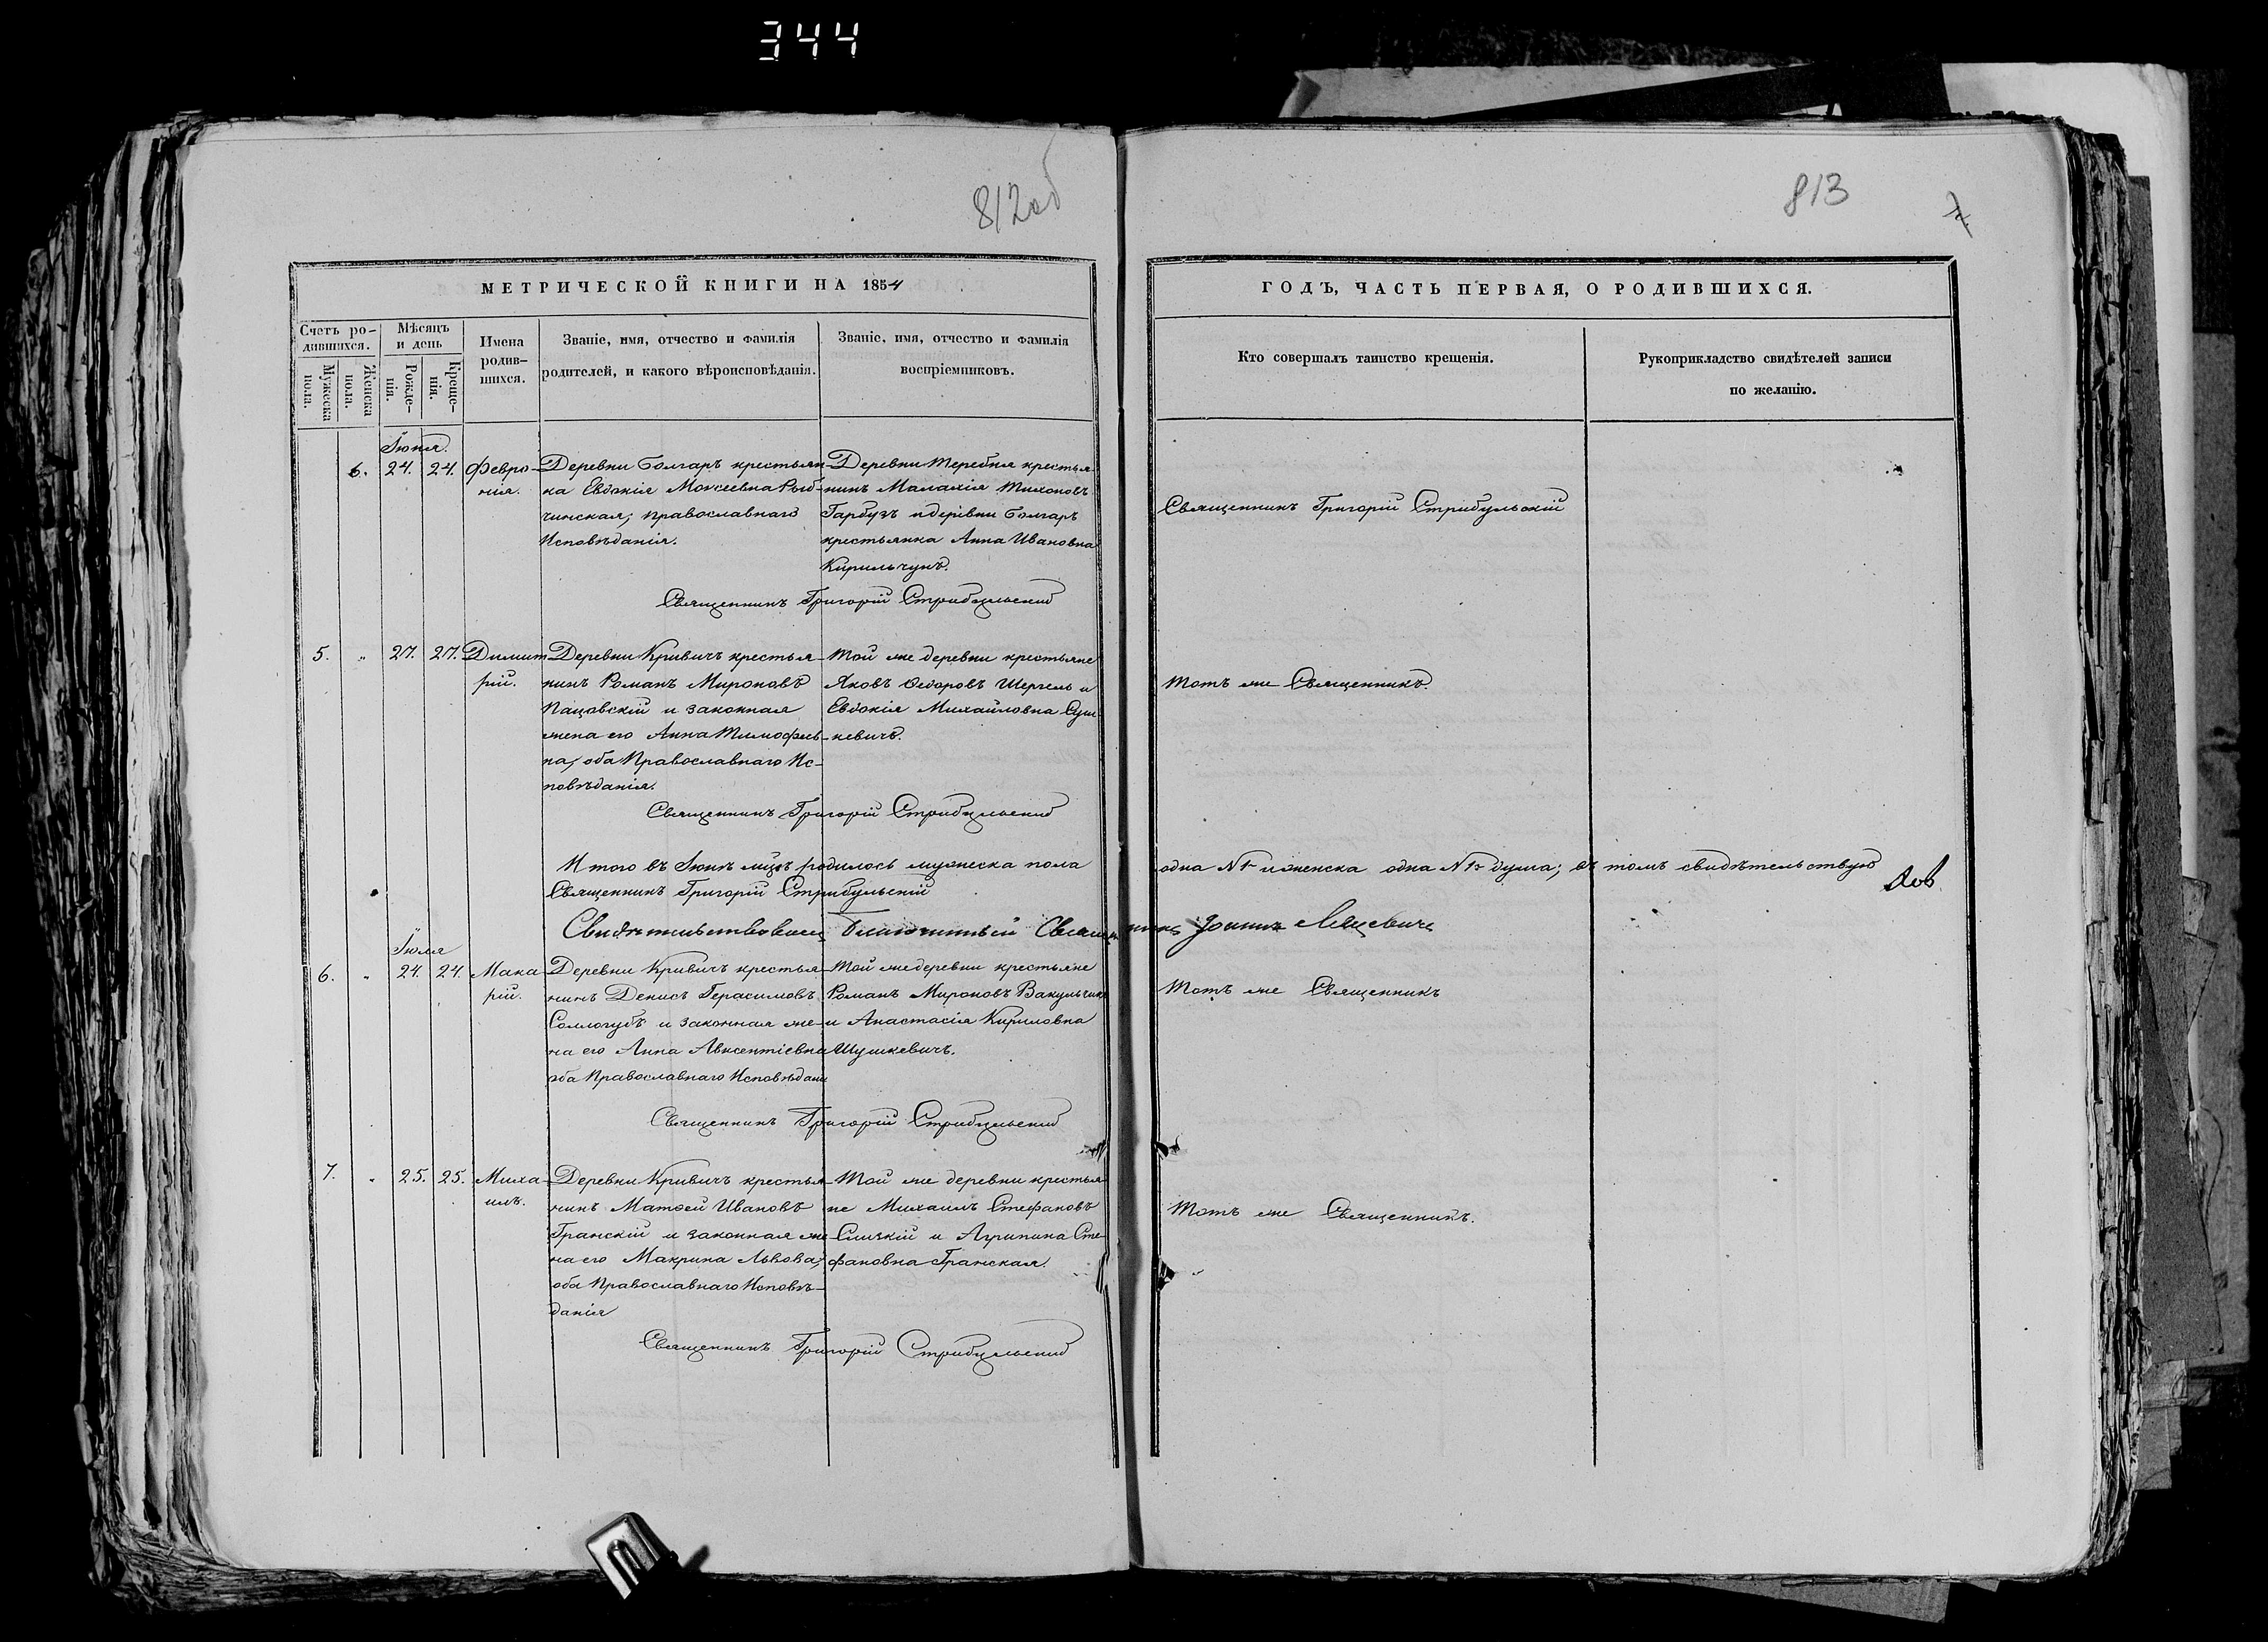 344
812об
813
7
МЕТРИЧЕСКОЙ КНИГИ НА 1854
ГОДЪ, ЧАСТЬ ПЕРВАЯ, О РОДИВШИХСЯ.
Счетъ ро-
дившихся.
Мужеска пола.
Женска пола.
Мѣсяцъ
и день
Рожде-
нія.
Креще-
нія.
Имена
родив-
шихся.
Званіе, имя, отчество и фамилія
родителей, и какого вѣроисповѣданія.
Званіе, имя, отчество и фамилія
воспріемниковъ.
Кто совершалъ таинство крещенія.
Рукоприкладство свидѣтелей записи
по желанію.
Іюня.
6. 24. 24. Февро-
нія.
Деревни Болгаръ крестьян-
ка Евдокія Моисеевна Рыб-
чинская, православнаго
Исповѣданія.
Деревни Теребня крестья-
нинъ Малахія Тихоновъ
Гарбузъ и деревни Болгаръ
крестьянка Анна Ивановна
Кирильчукъ.
Священникъ Григорій Стрибульскій
Священникъ Григорій Стрибульскій
5. „ 27. 27. Димит
рій.
Деревни Кривичъ крестья-
нинъ Романъ Мироновъ
Пацовскій и законная
жена его Анна Тимофѣев-
на, оба Православнаго Ис-
повѣданія.
Той же деревни крестьяне
Яковъ Ѳедоровъ Шергель и
Евдокія Михайловна Суш-
кевичъ.
Тотъ же Священникъ.
Священникъ Григорій Стрибульскій
Итого въ Іюнѣ мцѣ родилось мужеска пола
одна № 1 и женска одна № 1 душа; въ томъ свидѣтельствую
Священникъ Григорій Стрибульскій
Свидѣтельствовалъ Благочинный Священникъ Іоаннъ
Іюля
6. „ 24. 24. Мака
рій.
Деревни Кривичъ крестья-
нинъ Денисъ Герасимовъ
Соллогубъ и законная же-
на его Анна Авксентіевна
оба Православнаго Исповѣдані
Той же деревни крестьяне
Романъ Мироновъ Вакульчикъ
и Анастасія Кириловна
Шушкевичъ.
Тотъ же Священникъ
Священникъ Григорій Стрибульскій
7. „ 25. 25. Миха-
илъ.
Деревни Кривичъ крестья-
нинъ Матѳей Ивановъ
Гранскій и законная же
на его Макрина Львова,
оба Православнаго Исповѣ-
данія
Той же деревни крестья
не Михаилъ Стефановъ
Слизкій и Агрипина Сте-
фановна Гранская.
Тотъ же Священникъ.
Священникъ Григорій Стрибульскій